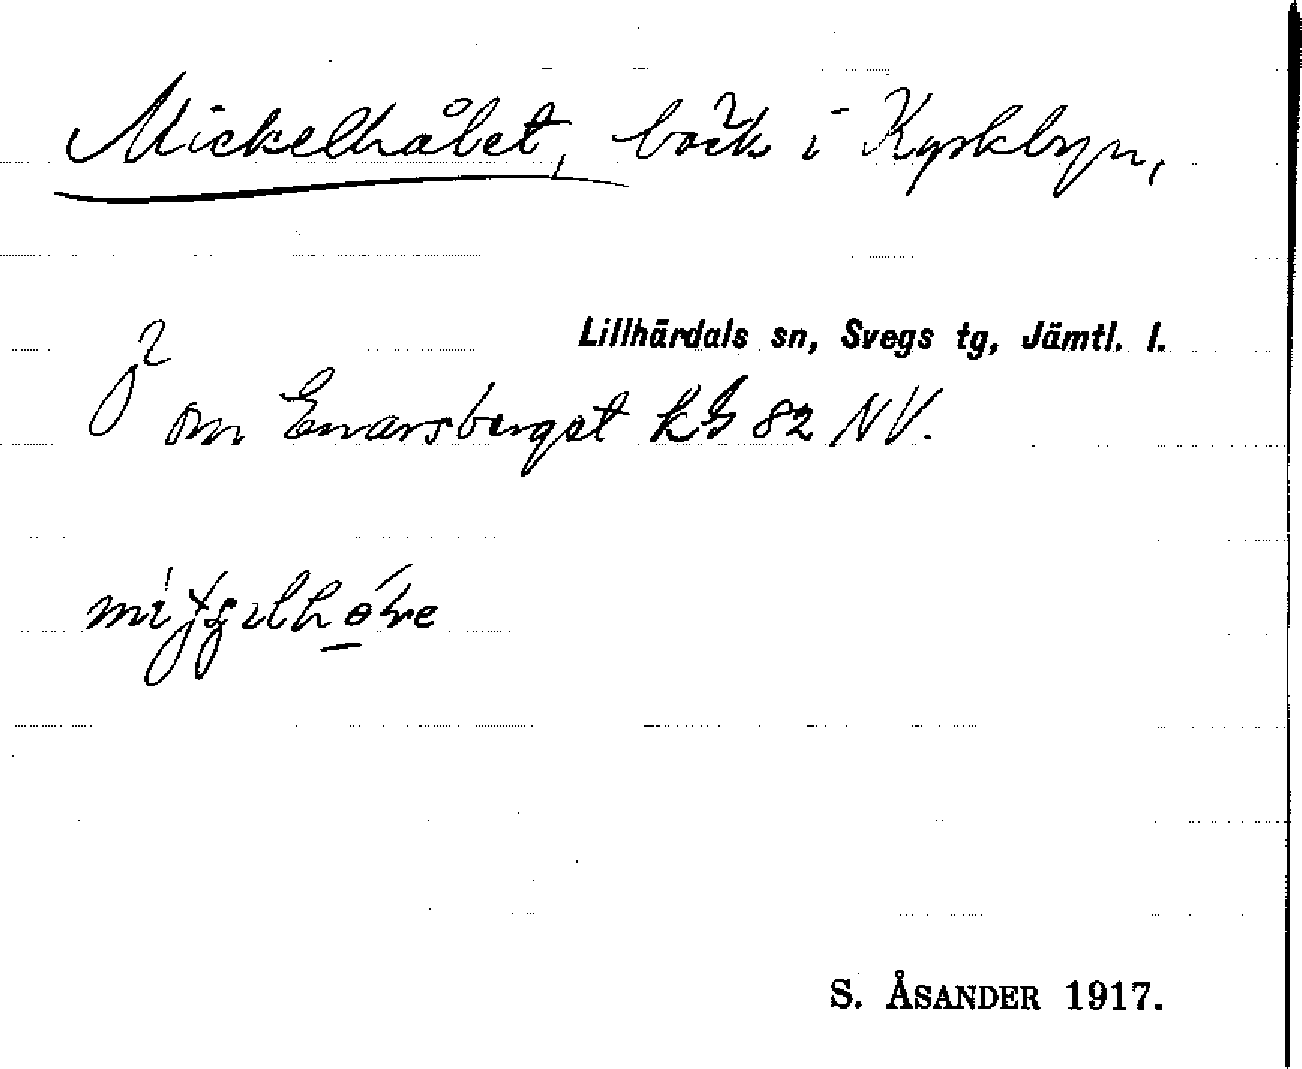 Mickelhålet, bäck i Kyrkbyn,
Lillhärdals sn, Svegs tg, Jämtl. l.
Ö om Enarsberget kb 82 NV.
S. ÅSANDER 1917.